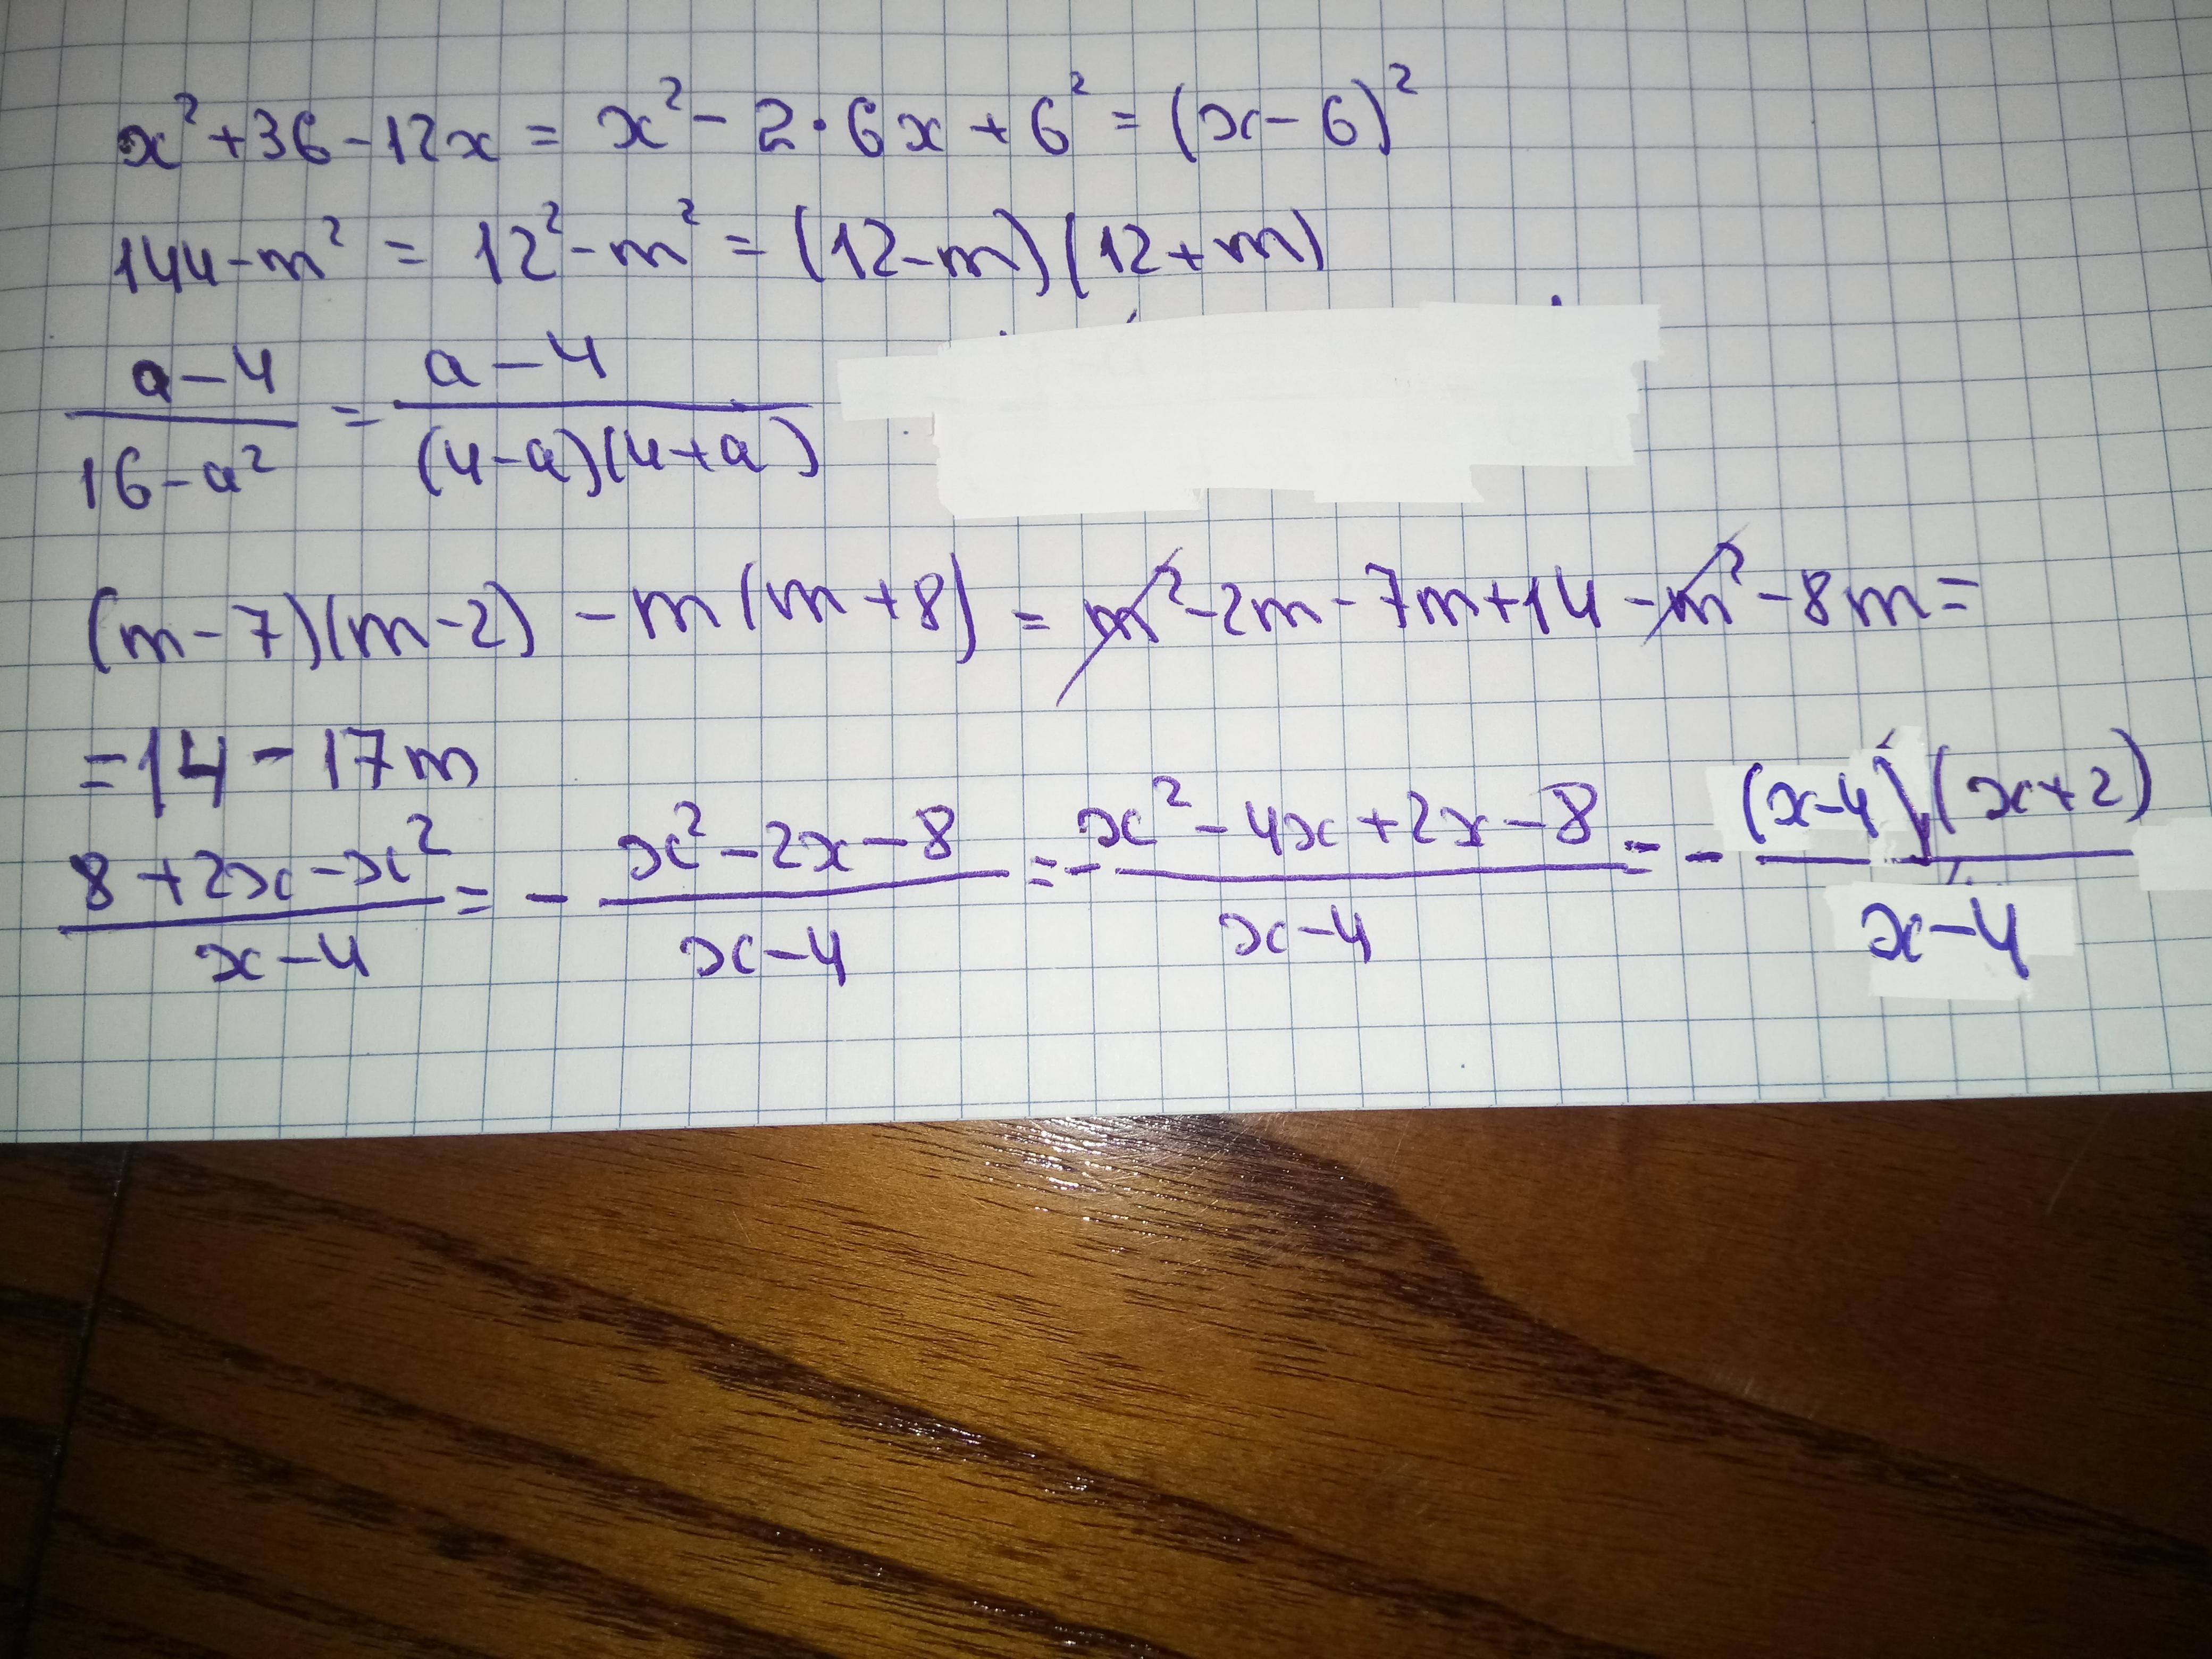 x² + 36 - 12x = x² - 2·6x + 6² = (x - 6)²
144 - m² = 12² - m² = (12 - m)(12 + m)
(a - 4)/(16 - a²) = (a - 4)/((4 - a)(4 + a))
(m - 7)(m - 2) - m(m + 8) = m² - 2m - 7m + 14 - m² - 8m =
= 14 - 17m
(8 + 2x - x²)/(x - 4) = - (x² - 2x - 8)/(x - 4) = - (x² - 4x + 2x - 8)/(x - 4) = - ((x - 4)(x + 2))/(x - 4)